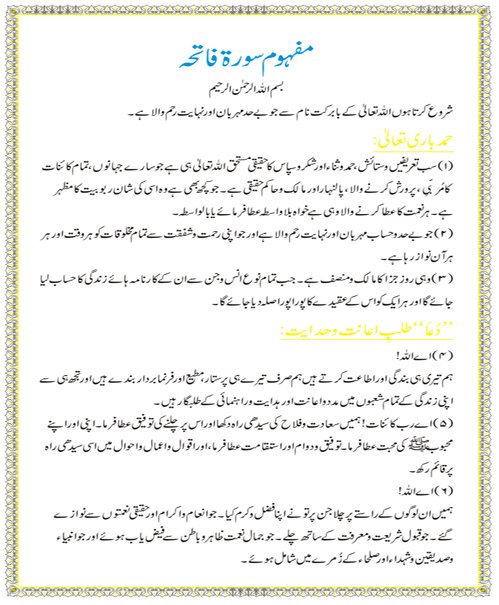 مفہوم سورۃ فاتحہ
بسم اللہ الرحمٰن الرحیم
شروع کرتا ہوں اللہ تعالیٰ کے بابرکت نام سے جو بے حد مہربان اور نہایت رحم والا ہے۔
حمد باری تعالیٰ:
(۱) سب تعریفیں و ستائش، حمد و ثناء اور شکر و سپاس کا حقیقی مستحق اللہ تعالیٰ ہی ہے جو سارے جہانوں، تمام کائنات
کا مُربّی، پرورش کرنے والا، پالنہار اور مالک و حاکم حقیقی ہے۔ جو کچھ بھی ہے وہ اسی کی شان ربوبیت کا مظہر
ہے۔ ہر نعمت کا عطا کرنے والا وہی ہے خواہ بلا واسطہ عطا فرمائے یا بالواسطہ۔
(۲) جو بے حد و حساب مہربان اور نہایت رحم والا ہے اور جو اپنی رحمت و شفقت سے تمام مخلوقات کو ہر وقت اور ہر
ہر آن نواز رہا ہے۔
(۳) وہی روز جزا کا مالک و منصف ہے۔ جب تمام نوع انس و جن سے ان کے کارنامہ ہائے زندگی کا حساب لیا
جائے گا اور ہر ایک کو اس کے عقیدے کا پورا پورا صلہ دیا جائے گا۔
’’دُعا‘‘ طلب اعانت و ہدایت:
(۴) اے اللہ!
ہم تیری ہی بندگی اور اطاعت کرتے ہیں ہم صرف تیرے ہی پرستار، مطیع اور فرمانبردار بندے ہیں اور تجھ ہی سے
اپنی زندگی کے تمام شعبوں میں مدد و اعانت اور ہدایت و راہنمائی کے طلبگار ہیں۔
(۵) اے رب کائنات! ہمیں سعادت و فلاح کی سیدھی راہ دکھا اور اس پر چلنے کی توفیق عطا فرما۔ اپنی اور اپنے
محبوب ﷺ کی محبت عطا فرما۔ توفیق و دوام اور استقامت عطا فرما، اور اقوال و اعمال و احوال میں اسی سیدھی راہ
پر قائم رکھ۔
(۶) اے اللہ!
ہمیں ان لوگوں کے راستے پر چلا جن پر تو نے اپنا فضل و کرم کیا۔ جو انعام و اکرام اور حقیقی نعمتوں سے نوازے
گئے۔ جو قبول شریعت و معرفت کے ساتھ چلے۔ جو جمال نعمت ظاہر و باطن سے فیض یاب ہوئے اور جو انبیاء
و صدیقین و شہداء اور صلحاء کے زُمرے میں شامل ہوئے۔